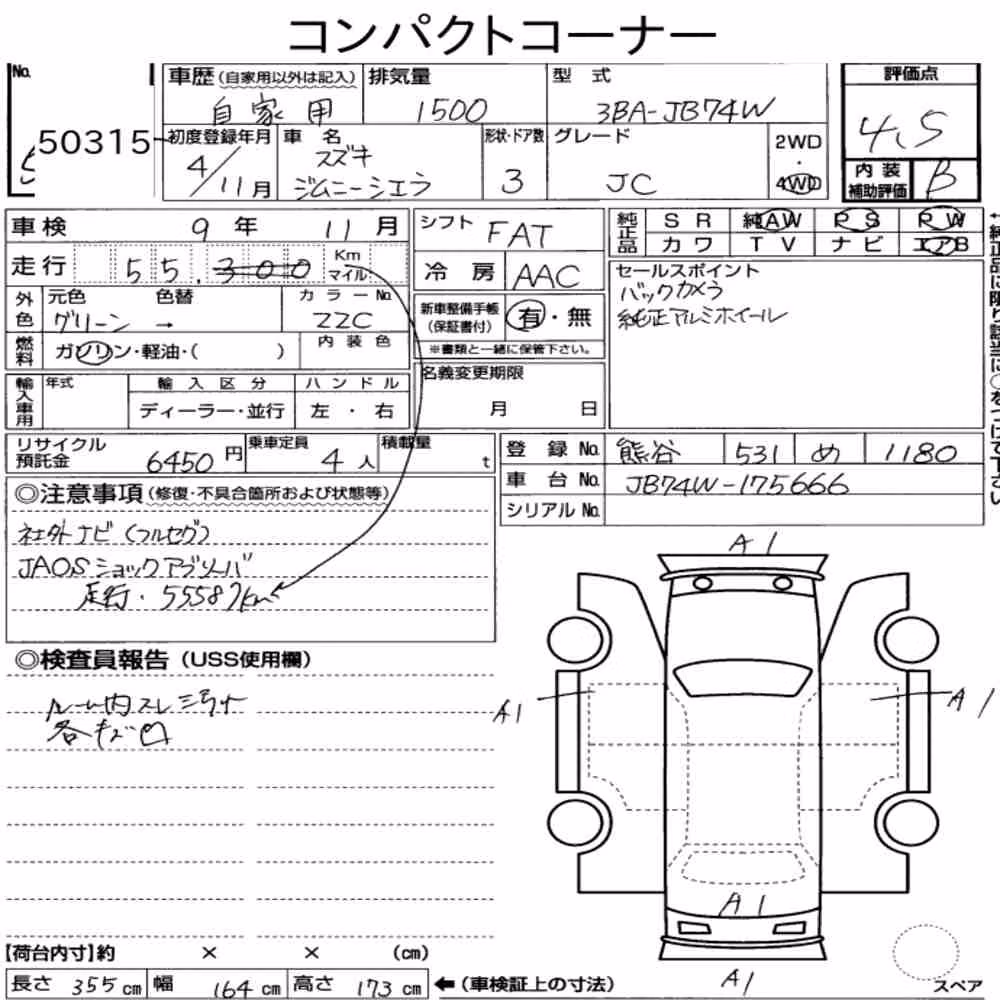 コンパクトコーナー
No. 50315
車歴 (自家用以外は記入) 自家用
排気量 1500
型式 3BA-JB74W
評価点 4.5
初度登録年月 4/11月
車名 スズキ ジムニーシエラ
形状・ドア数 3
グレード JC
2WD・4WD
内装補助評価 B
車検 9年 11月
シフト FAT
純正品 SR 純AW PS PW
カワ TV ナビ エアB
走行 55,300 Km マイル
冷房 AAC
セールスポイント
バックカメラ
純正アルミホイール
外色 元色 グリーン → 色替 カラーNo. ZZC
新車整備手帳(保証書付) 有・無
※書類と一緒に保管下さい。
燃料 ガソリン・軽油・( ) 内装色
名義変更期限 月 日
輸入車用 年式 輸入区分 ハンドル
ディーラー・並行 左・右
リサイクル預託金 6450円
乗車定員 4人
積載量 t
登録No. 熊谷 531 め 1180
車台No. JB74W-175666
シリアルNo.
◎注意事項(修復・不具合箇所および状態等)
社外ナビ(フルセグ)
JAOSショックアブソーバ
走行・55587km
A1
◎検査員報告(USS使用欄)
ルーム内スレ
各キズ凹
A1
A1
A1
【荷台内寸】約 × × (cm)
長さ 355cm 幅 164cm 高さ 173cm ←(車検証上の寸法)
A1
スペア